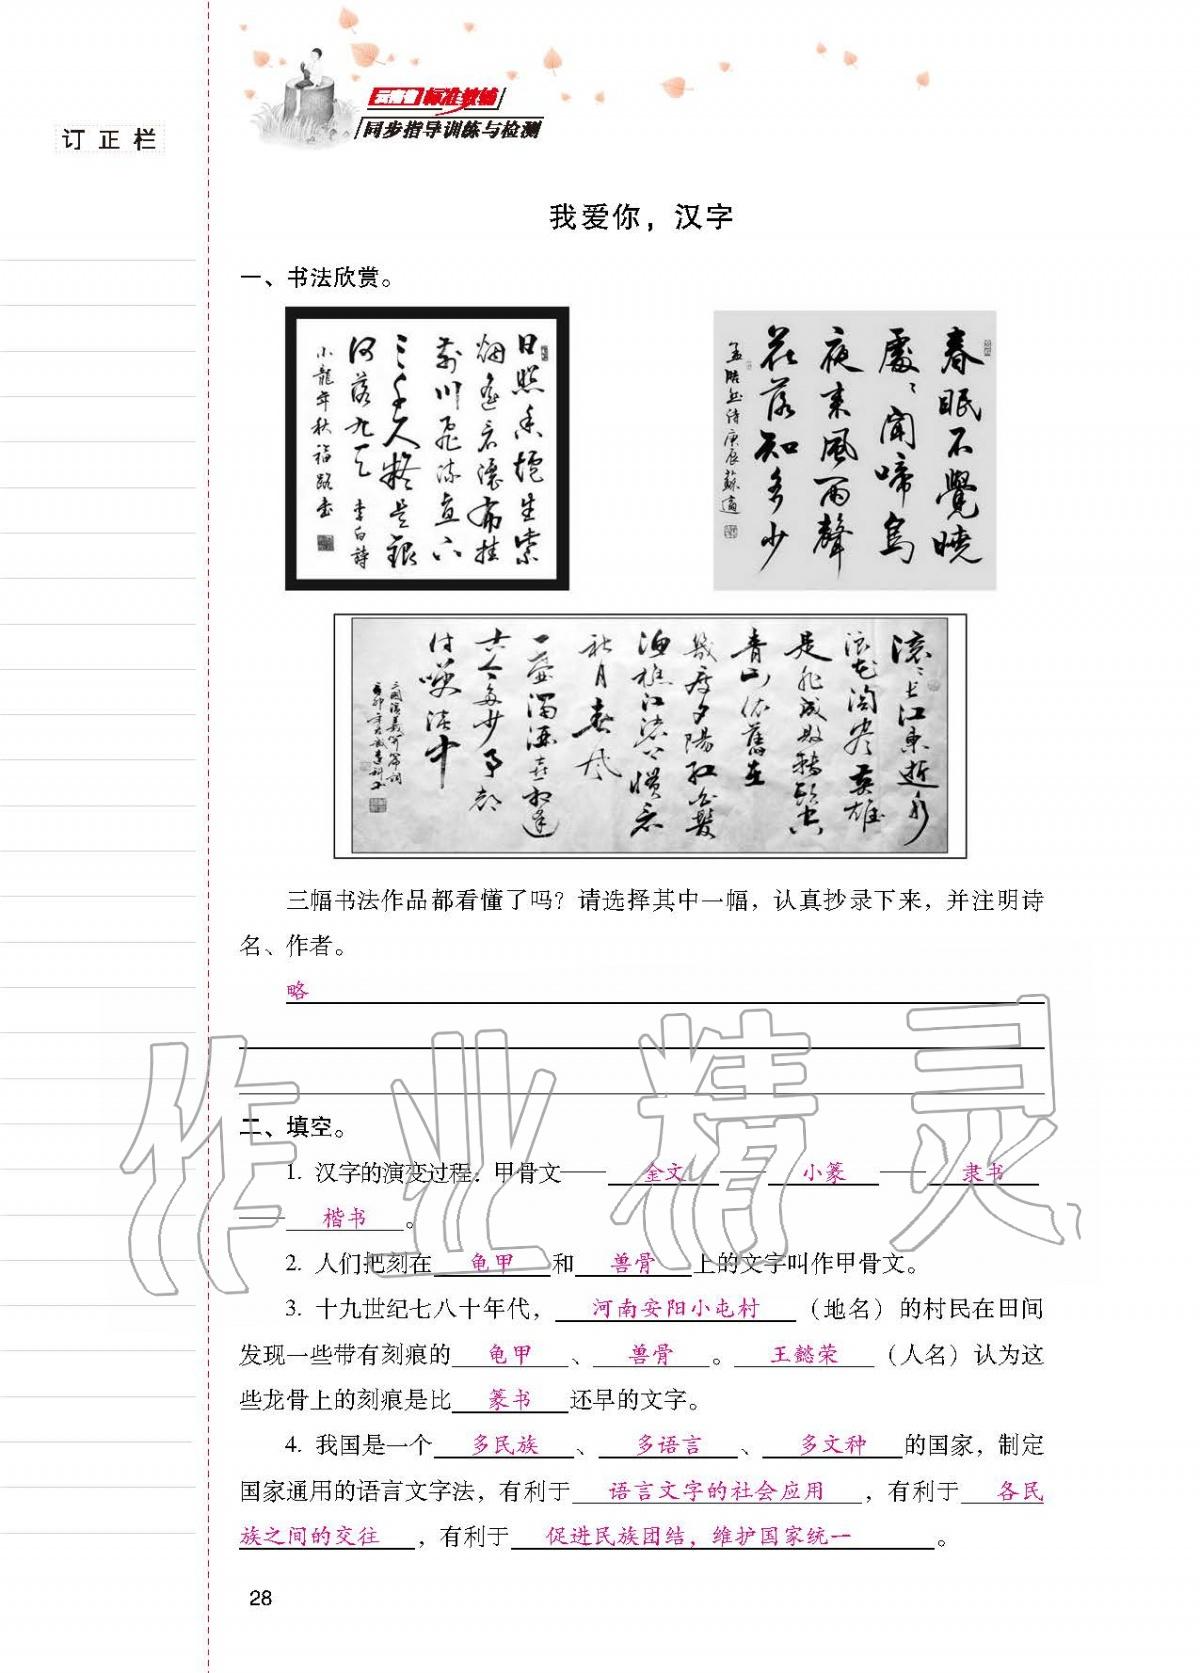 云南省标准教辅
同步指导训练与检测
订正栏
我爱你，汉字
一、书法欣赏。
日照香炉生紫
烟遥看瀑布挂
前川飞流直下
三千尺疑是银
河落九天 李白诗
小龙年秋福路书
春眠不覺曉
處處聞啼鳥
夜来風雨聲
花落知多少
孟浩然诗庚辰蘇適
滚滚长江東逝水
浪花淘尽英雄
是非成败转头空
青山依舊在
幾度夕陽红白髮
渔樵江渚上惯看
秋月春风
一壶濁酒喜相逢
古今多少事都
付笑谈中
三幅书法作品都看懂了吗？请选择其中一幅，认真抄录下来，并注明诗
名、作者。
略
二、填空。
1. 汉字的演变过程：甲骨文——金文——小篆——隶书
——楷书。
2. 人们把刻在龟甲和兽骨上的文字叫作甲骨文。
3. 十九世纪七八十年代，河南安阳小屯村（地名）的村民在田间
发现一些带有刻痕的龟甲、兽骨。王懿荣（人名）认为这
些龙骨上的刻痕是比篆书还早的文字。
4. 我国是一个多民族、多语言、多文种的国家，制定
国家通用的语言文字法，有利于语言文字的社会应用，有利于各民
族之间的交往，有利于促进民族团结，维护国家统一。
28
作业精灵